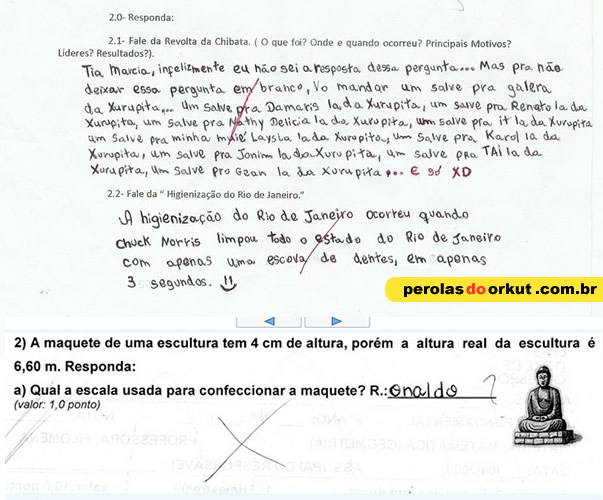 2.0- Responda:
2.1- Fale da Revolta da Chibata. ( O que foi? Onde e quando ocorreu? Principais Motivos?
Líderes? Resultados?).
Tia Marcia, infelizmente eu não sei a resposta dessa pergunta... Mas pra não
deixar essa pergunta em branco, Vo mandar um salve pra galera
da Xurupita... um salve pra Damaris la da Xurupita, um salve pra Renato la da
Xurupita, um salve pra Nathy Delicia la da Xurupita, um salve pra it la da Xurupita
um salve pra minha muié Laysla la da Xurupita, um salve pra Karol la da
Xurupita, um salve pra Jonim la da Xurupita, um salve pra TAi la da
Xurupita, um salve pro Gean la da Xurupita... E só XD
2.2- Fale da " Higienização do Rio de Janeiro."
A higienização do Rio de Janeiro ocorreu quando
Chuck Norris limpou todo o estado do Rio de Janeiro
com apenas uma escova de dentes, em apenas
3 segundos. !!
perolasdoorkut.com.br
2) A maquete de uma escultura tem 4 cm de altura, porém a altura real da escultura é
6,60 m. Responda:
a) Qual a escala usada para confeccionar a maquete? R.: onaldo ?
(valor: 1,0 ponto)